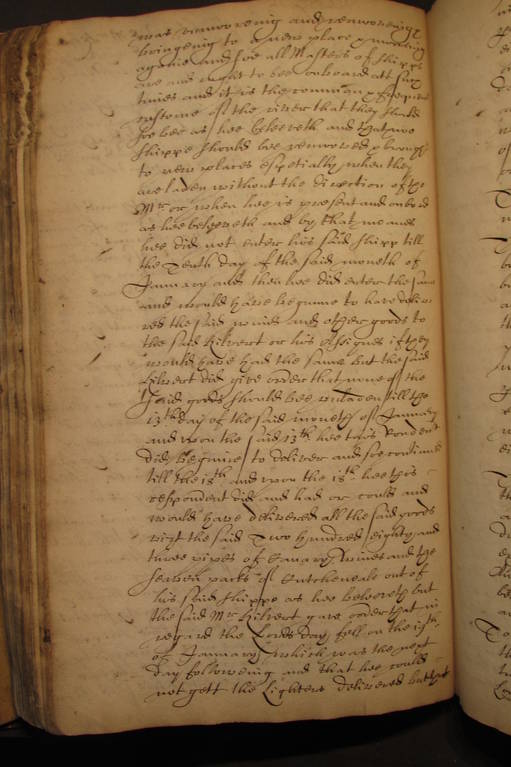 was removeing and removeing
bringing to a new place & mooring
againe and soe all Masters of shipps
are and ought to bee onboard att such
times and it is the common & frequent
custome of the river that they should
soe bee as hee beleeveth and that noe
shipps should bee removed & brought
to new places espetially when they
are laden without the direction of the
Mr or when hee is present and onboard
as hee beleeveth and by that meanes
hee did not enter his said shipp till
the Tenth day of the said moneth of
January and then hee did enter the same
and would have begunne to have delive
red the said wines and other goods to
the said Hilvert or his Assignes if they
would have had the same but the said
Hilvert did give order that none of the
said goods should bee unladen till the
13th day of the said moneth of January
and upon the said 13th hee this Rendent
did beginne to deliver and soe continued
till the 18th and upon the 18th hee this
respondent did and had or could and
would have delivered all the said goods
vizt the said Two hundred eighty and
three pipes of Canary wines and the
seaven packs of Cutcheneale out of
his said shippe as hee beleeveth but
the said Mr Hilvert gave order that in
regard the Lords day fell on the
of January which was the next
day following and that hee could
not gett the Lighters delivered but that